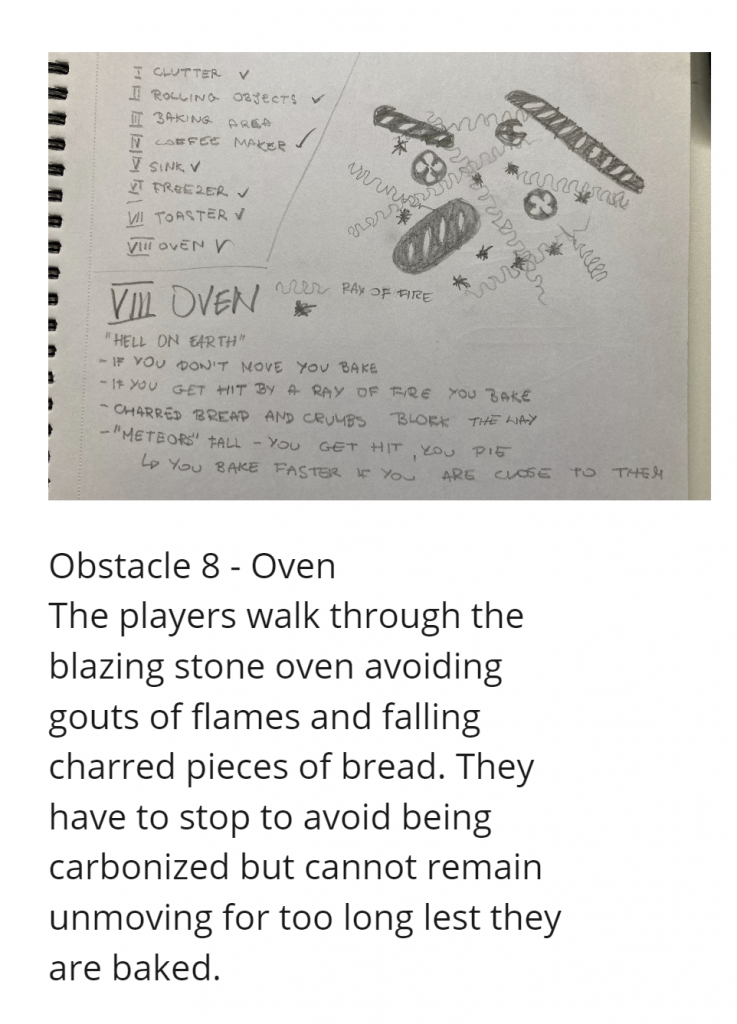 I CLUTTER ✓
II ROLLING OBJECTS ✓
III BAKING AREA
IV COFFEE MAKER ✓
V SINK ✓
VI FREEZER ✓
VII TOASTER ✓
VIII OVEN ✓
VIII OVEN
RAY OF FIRE
"HELL ON EARTH"
- IF YOU DON'T MOVE YOU BAKE
- IF YOU GET HIT BY A RAY OF FIRE YOU BAKE
- CHARRED BREAD AND CRUMBS BLOCK THE WAY
- "METEORS" FALL - YOU GET HIT, YOU DIE
↳ YOU BAKE FASTER IF YOU ARE CLOSE TO THEM
Obstacle 8 - Oven
The players walk through the
blazing stone oven avoiding
gouts of flames and falling
charred pieces of bread. They
have to stop to avoid being
carbonized but cannot remain
unmoving for too long lest they
are baked.